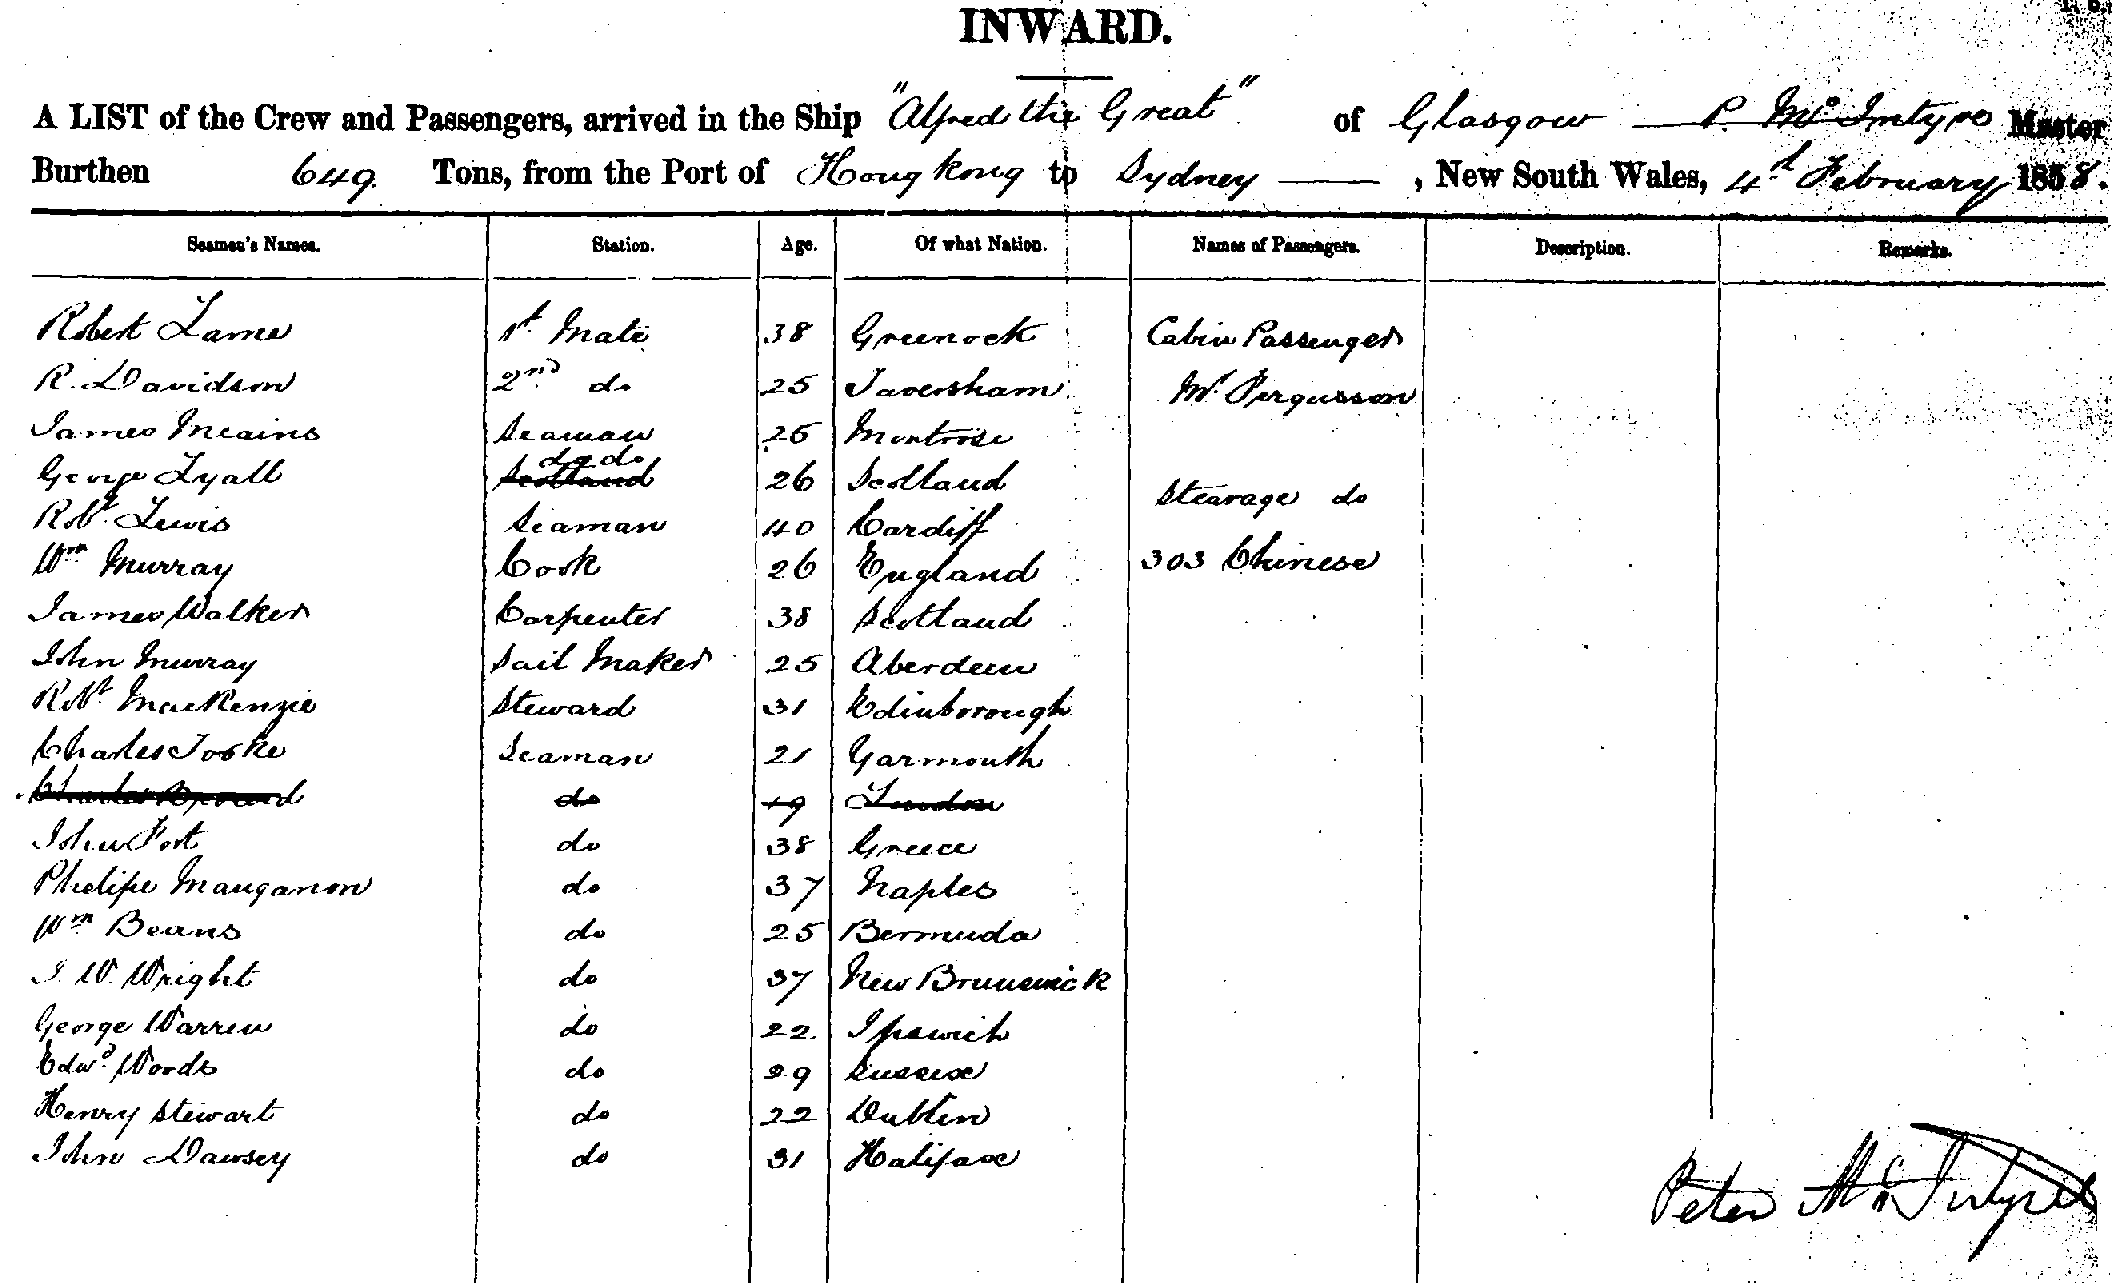 INWARD.
A LIST of the Crew and Passengers, arrived in the Ship "Alfred the Great" of Glasgow — P. McIntyre Master
Burthen 649 Tons, from the Port of Hong Kong to Sydney — , New South Wales, 4th February 1858.
Seamen's Names. Station. Age. Of what Nation. Names of Passengers. Description. Remarks.
Robert Lame 1st Mate 38 Greenock Cabin Passenger
R. Davidson 2nd do 25 Faversham Mr Fergusson
James Meains Seaman 25 Montrose
George Lyall Scotland do do 26 Scotland
Stearage do
Robt Lewis Seaman 40 Cardiff
Wm Murray Cook 26 England 303 Chinese
James Walker Carpenter 38 Scotland
John Murray Sail Maker 25 Aberdeen
Robt MacKenzie Steward 31 Edinborough
Charles Tooke Seaman 21 Yarmouth
Charles do 19 London
John Fort do 38 Greece
Phelipe Mauganon do 37 Naples
Wm Beans do 25 Bermuda
J. W. Wright do 37 New Brunswick
George Warren do 22 Ipswich
Edwd Woods do 29 Sussex
Henry Stewart do 22 Dublin
John Dawsey do 31 Halifax
Peter McIntyre